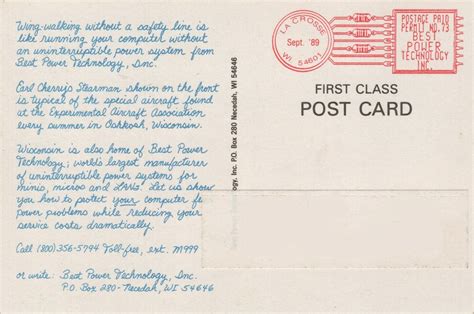 Wing-walking without a safety line is
like running your computer without
an uninterruptible power system from
Best Power Technology, Inc.
Earl Cherry's Stearman shown on the front
is typical of the special aircraft found
at the Experimental Aircraft Association
every summer in Oshkosh, Wisconsin.
Wisconsin is also home of Best Power
Technology; world's largest manufacturer
of uninterruptible power systems for
minis, micros and LANs. Let us show
you how to protect your computer fr
power problems while reducing your
service costs dramatically.
Call (800) 356-5794 Toll-free, ext. M999
or write: Best Power Technology, Inc.
P.O. Box 280 - Necedah, WI 54646
ology, Inc. P.O. Box 280 Necedah, WI 54646
LA CROSSE
Sept. '89
WI 54601
POSTAGE PAID
PERMIT NO. 73
BEST
POWER
TECHNOLOGY
INC.
FIRST CLASS
POST CARD